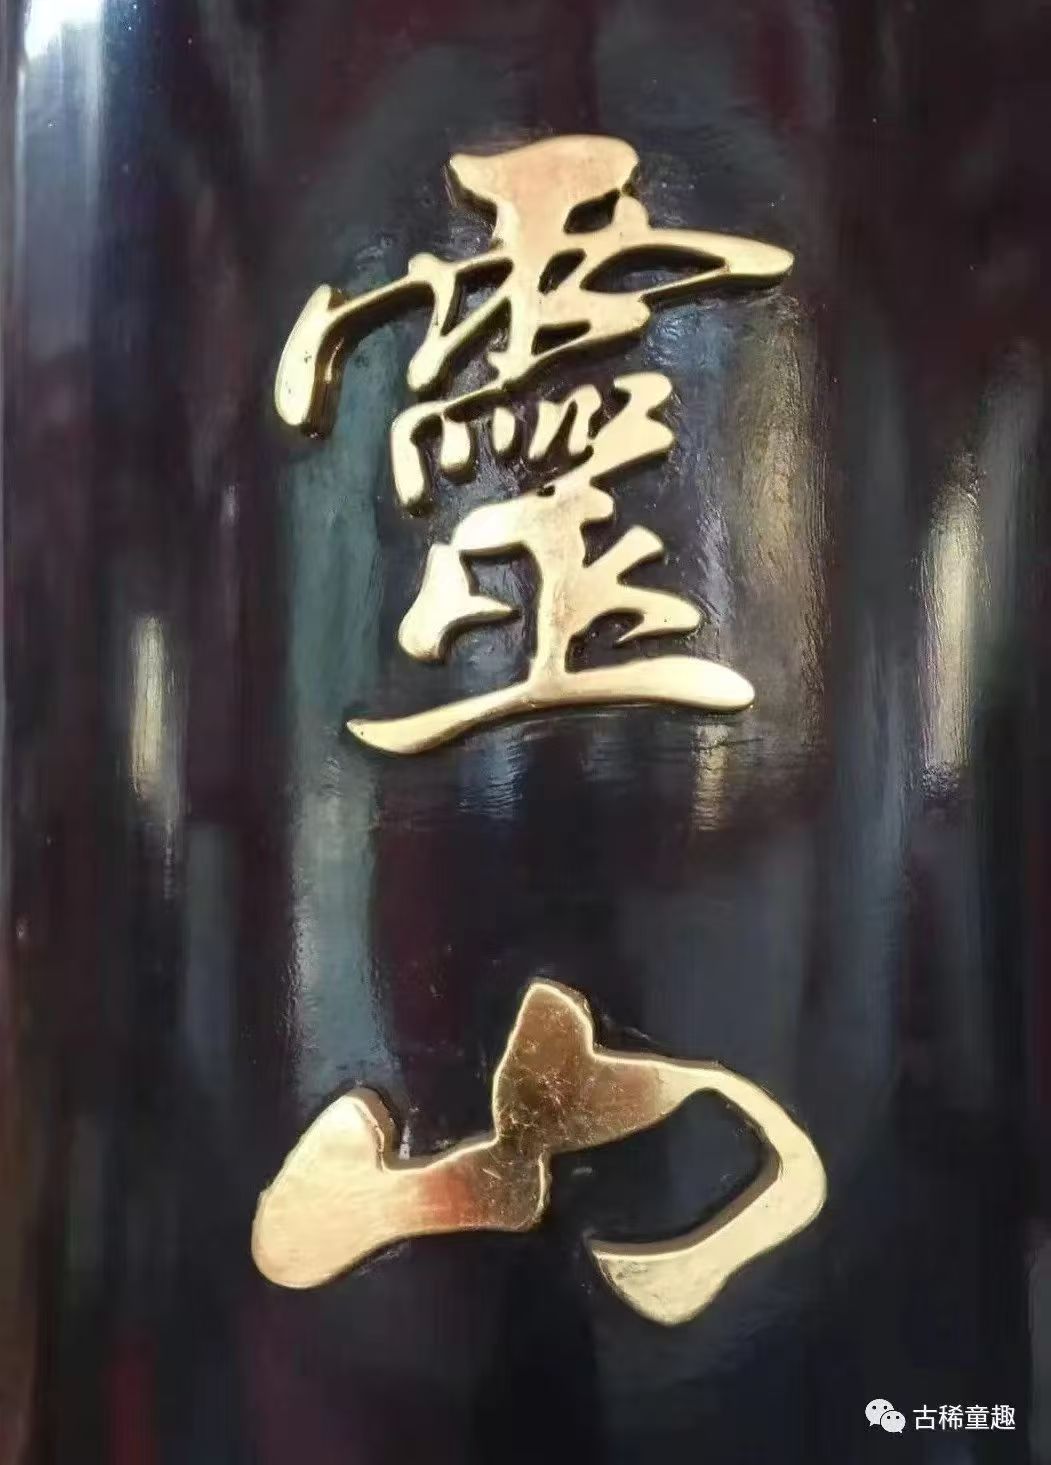 靈山
古稀童趣